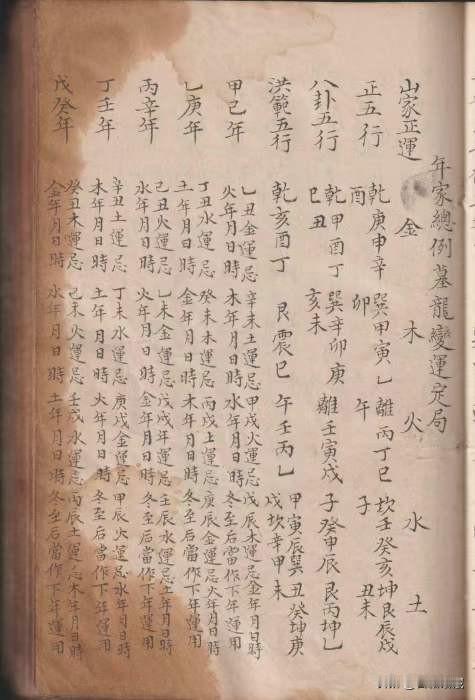 年家總例墓龍變運定局
山家正運 金 木 火 水 土
正五行 乾庚申辛酉 巽甲寅乙卯 離丙丁巳午 坎壬癸亥子 坤艮辰戌丑未
八卦五行 乾甲酉丁巳丑 巽辛卯庚亥未 離壬寅戌 子癸申辰 艮丙坤乙
洪範五行 乾亥酉丁 艮震巳 午壬丙乙 甲寅辰巽戌坎辛申 丑癸坤庚未
甲己年 乙丑金運忌火年月日時 辛未土運忌木年月日時 甲戌火運忌水年月日時 戊辰木運忌金年月日時 冬至后當作下年運用
乙庚年 丁丑水運忌土年月日時 癸未木運忌金年月日時 丙戌土運忌木年月日時 庚辰金運忌火年月日時 冬至后當作下年運用
丙辛年 己丑火運忌水年月日時 乙未金運忌火年月日時 戊戌年運忌金年月日時 壬辰水運忌土年月日時 冬至后當作下年運用
丁壬年 辛丑土運忌木年月日時 丁未水運忌土年月日時 庚戌金運忌火年月日時 甲辰火運忌水年月日時 冬至后當作下年運用
戊癸年 癸丑木運忌金年月日時 己未火運忌水年月日時 壬戌水運忌土年月日時 丙辰土運忌木年月日時 冬至后當作下年運用